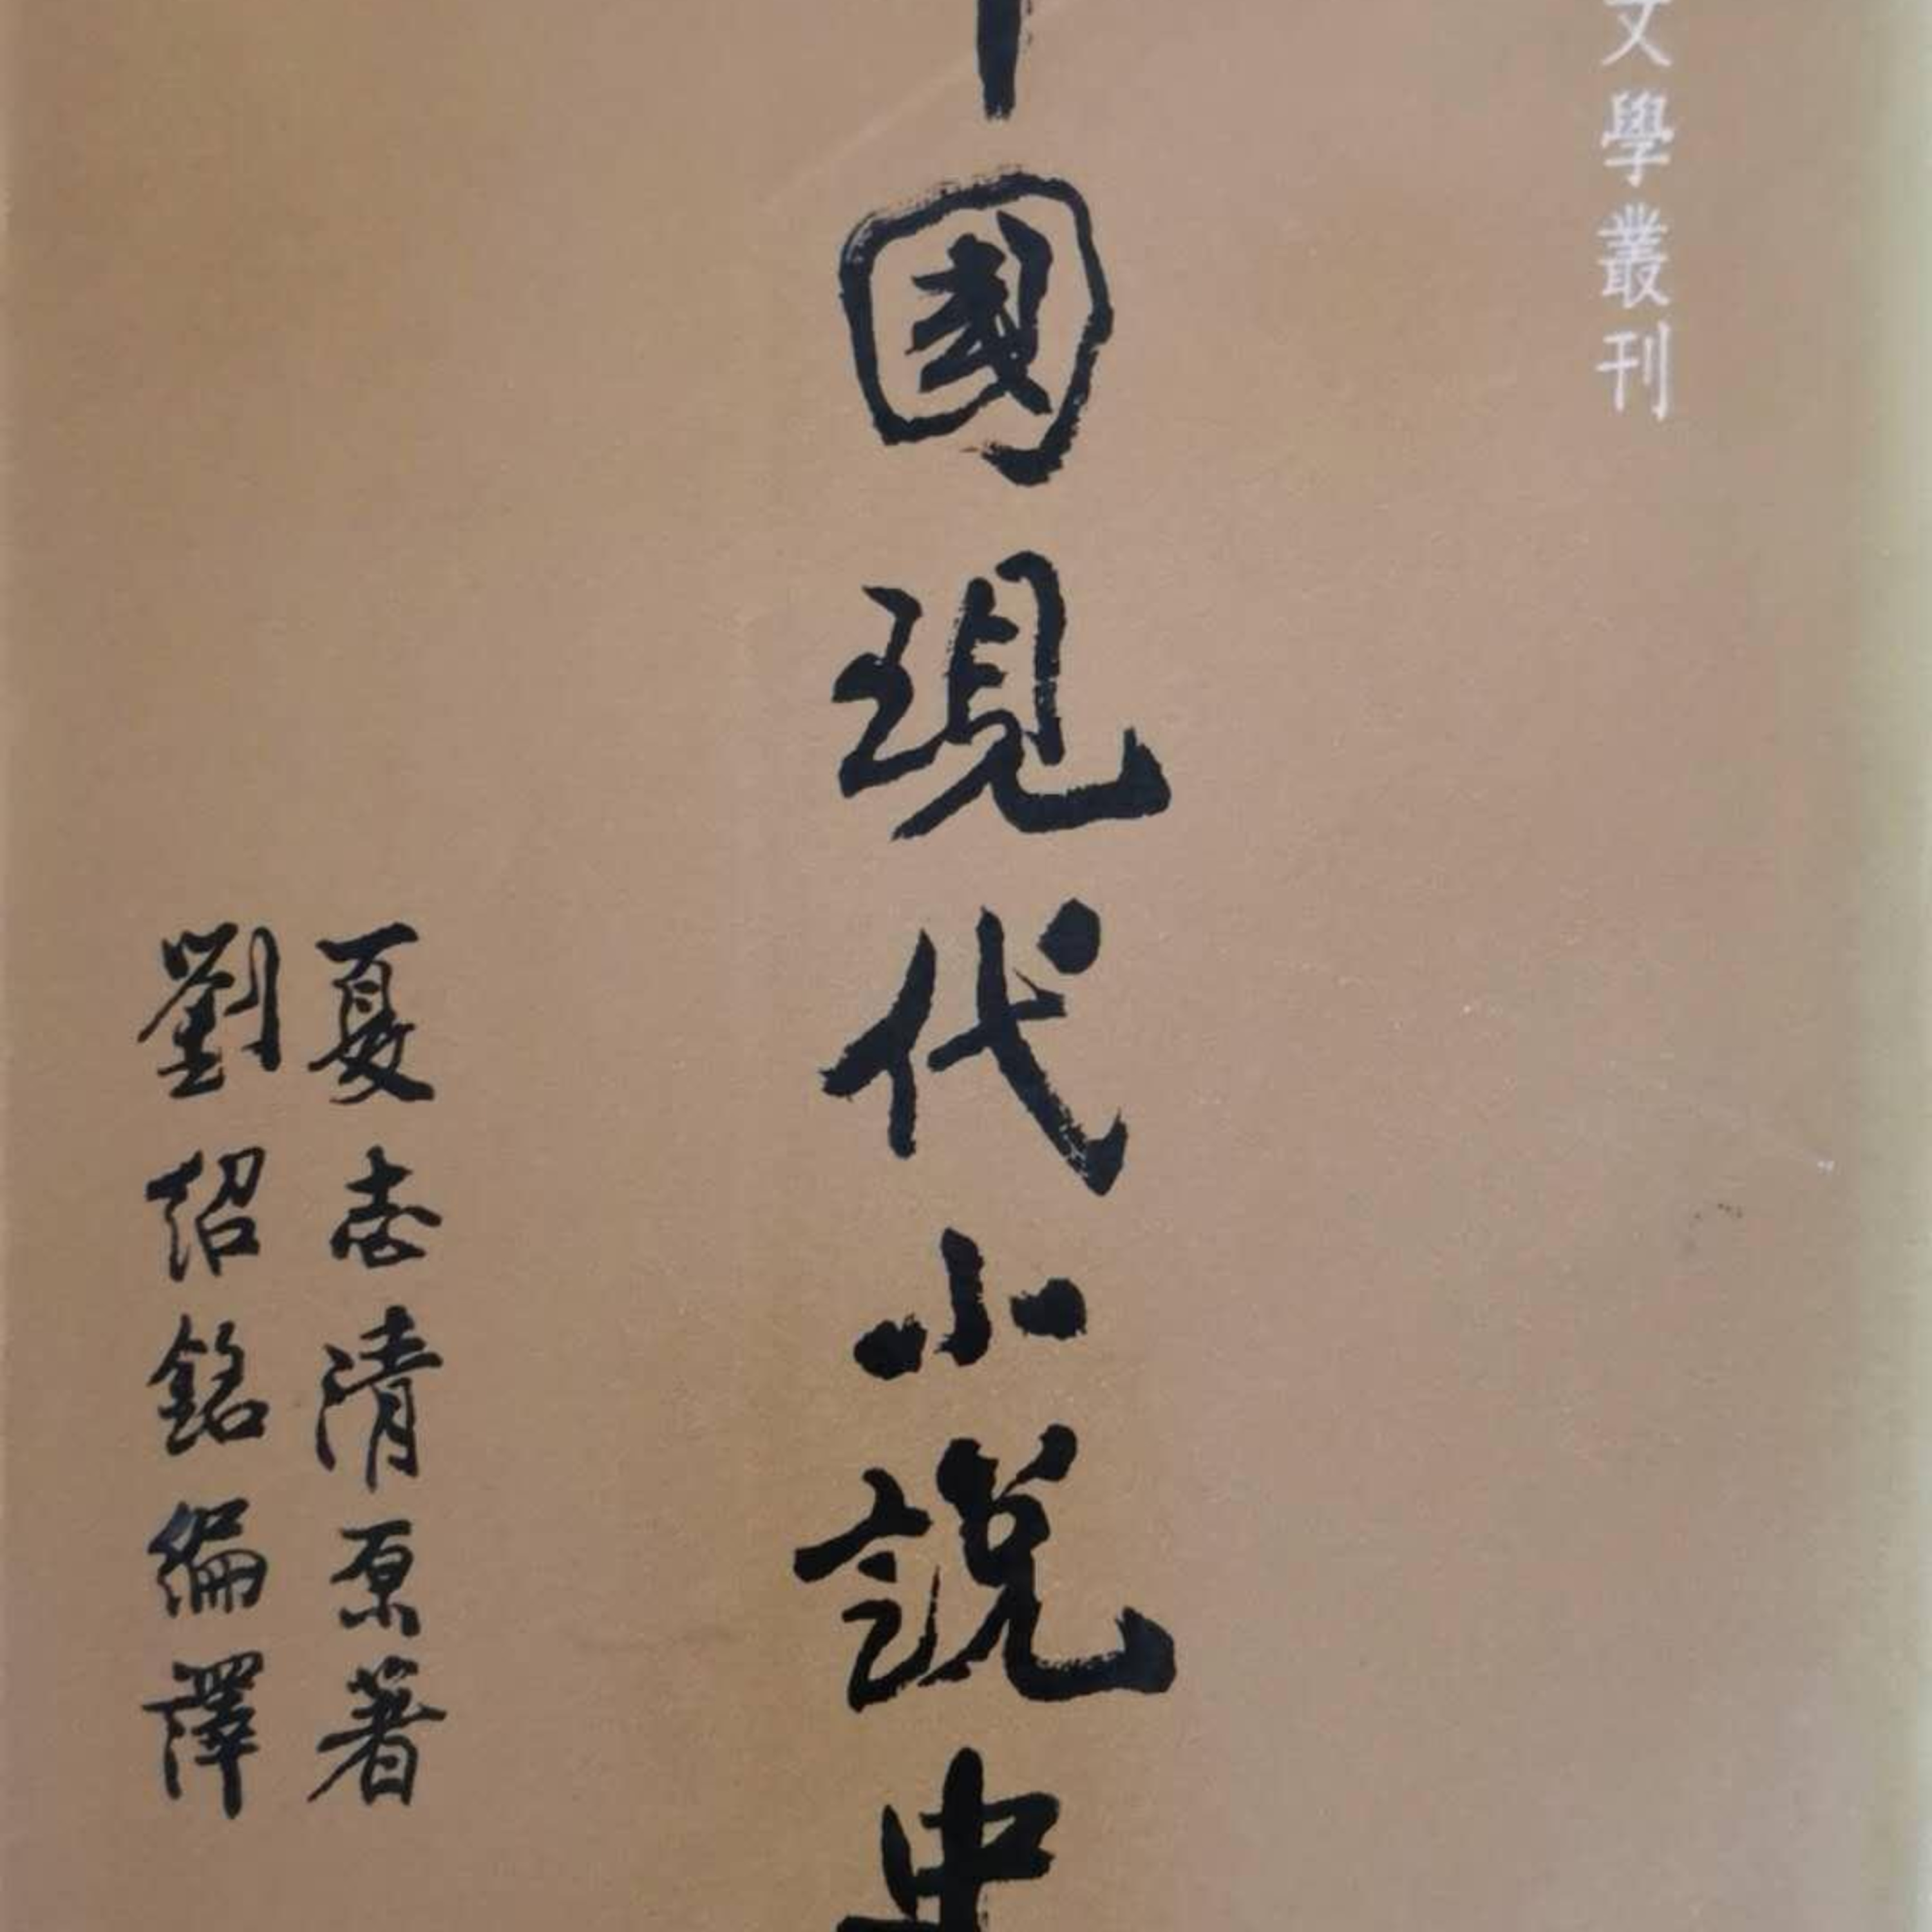 文學叢刊
中國現代小説史
夏志清原著
劉紹銘編譯